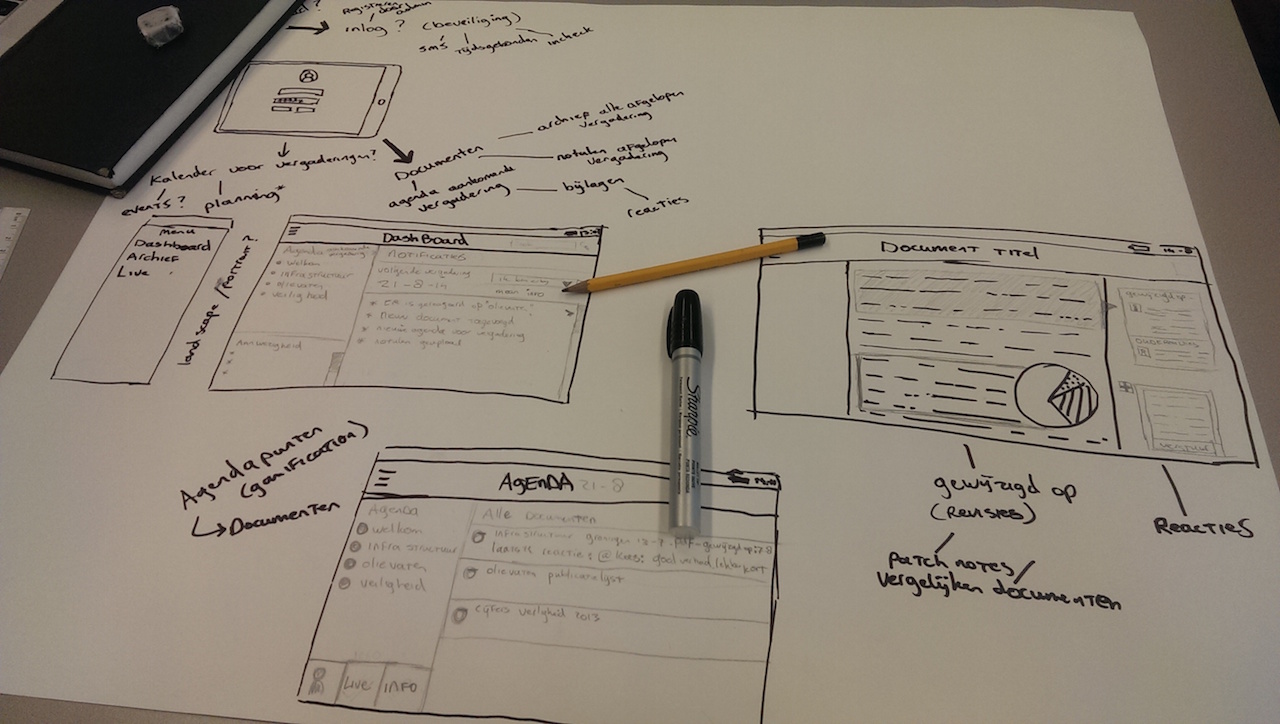 inlog? (beveiliging)
sms
tijdsgebonden
incheck
Kalender voor vergaderingen?
events?
planning*
Documenten
archief alle afgelopen
vergadering
notulen afgelopen
vergadering
agenda aankomende
vergadering
bijlagen
reacties
menu
Dashboard
Archief
Live
landscape / Portrait?
DashBoard
Agenda
welkom
infrastructuur
olievaten
veiligheid
Aanwezigheid
NOTIFICATIES
volgende vergadering
21-8-14
meer info
nieuw document toegevoegd
nieuwe agenda voor vergadering
notulen geupload
DOCUMENT TITEL
gewijzigd op
gewijzigd op
(REVISIES)
patch notes/
vergelijken documenten
REACTIES
Agendapunten
(gamification)
Documenten
AGENDA 21-8
AGENDA
welkom
infrastructuur
olievaten
veiligheid
LIVE
INFO
Alle Documenten
infrastructuur groningen
laatste reactie:
olievaten
cijfers veiligheid 2013
Sharpie